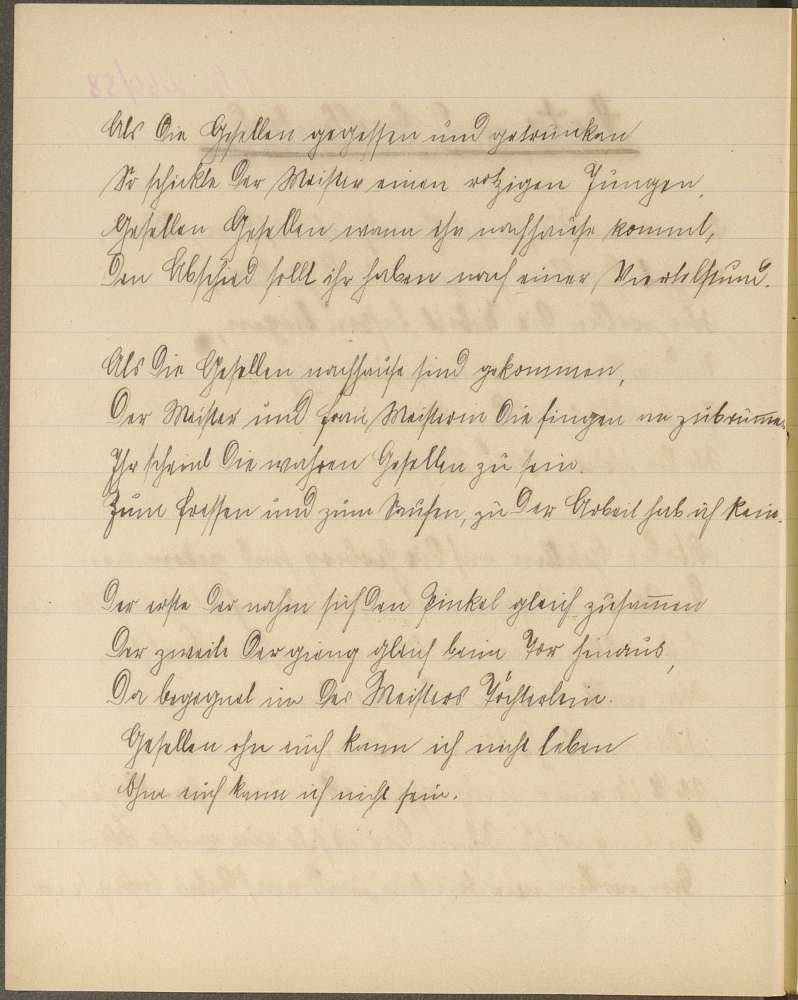 Als die Gesellen gegessen und getrunken
So schickte der Meister einen rotzigen Jungen,
Gesellen Gesellen wann ihr nachhause kommt,
Den Abschied sollt ihr haben nach einer Viertelstund.
Als die Gesellen nachhause sind gekommen,
Der Meister und Frau Meisterin die fingen an zubrumme
Ihr scheint die wahren Gesellen zu sein.
Zum fressen und zum Saufen, zu der Arbeit hab ich kein.
Der erste der nahm sich den Pinkel gleich zusammen
Der zweite der gieng gleich beim Tor hinaus,
Da begegnet im des Meisters Töchterlein.
Gesellen ohn euch kann ich nicht leben
Ohne euch kann ich nicht sein.